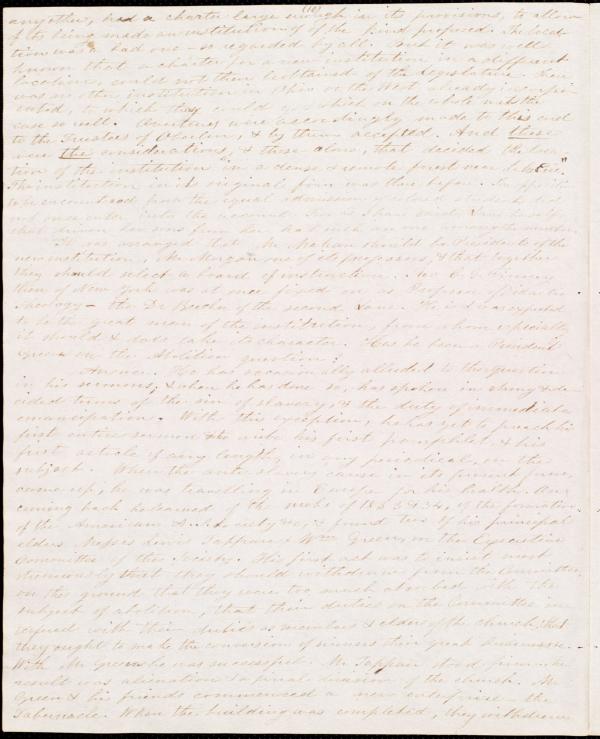 (10)
any other, had a charter large enough in its provisions, to allow
of its being made an institution of the kind proposed. The loca-
tion was a bad one — so regarded by all. But it was well
known that a charter for a new institution in a different
location, could not then be obtained of the Legislature. There
was no other institution in Ohio or the West already incorpo-
rated, to which they could go, which on the whole met the
case so well. Overtures were accordingly made to this end
to the Trustees of Oberlin, & by them accepted. And these
were the considerations, & these alone, that decided the loca-
tion of the institution "in a dense & remote forest near
The institution in its original form was there before. The opposition
to be encountered from the equal admission of colored students did
not once enter into the account.
that
It was arranged that Mr Mahan should be President of the
new institution, Mr Morgan one of its professors, & that together
they should select a board of instruction. Rev. C. G. Finney
then of New York was at once fixed on as Professor of Didactic
Theology — the Dr Beecher of the second Lane. He is & was expected
to be the great man of the institution, from whom especially
it should & does take its character. Has he been a "Radical
on the Abolition question"?
Answer. He has occasionally alluded to the question
in his sermons, & when he has done so, has spoken in strong & de-
cided terms of the sin of slavery, & the duty of immediate
emancipation. With this exception, he has yet to preach his
first entire sermon & to write his first pamphlet, & his
first article of any length, in any periodical, on the
subject. When the anti-slavery cause in its present form,
came up, he was travelling in Europe for his health. On
coming back he learned of the mobs of 1833 & 34, of the formation
of the American A. S. Society &c, & found two of his principal
elders Messrs Lewis Tappan & Wm Green, on the Executive
Committee of the Society. His first act was to insist most
strenuously that they should withdraw from the Committee,
on the ground that they were too much absorbed with the
subject of abolition, that their duties on the Committee in-
terfered with their duties as members & elders of the church, & that
they ought to make the conversion of sinners their great business.
With Mr Green he was successful. Mr Tappan stood firm. The
result was alienation & a final division of the church. Mr
Green & his friends commenced a new enterprise — the
Tabernacle. When the building was completed, they withdrew